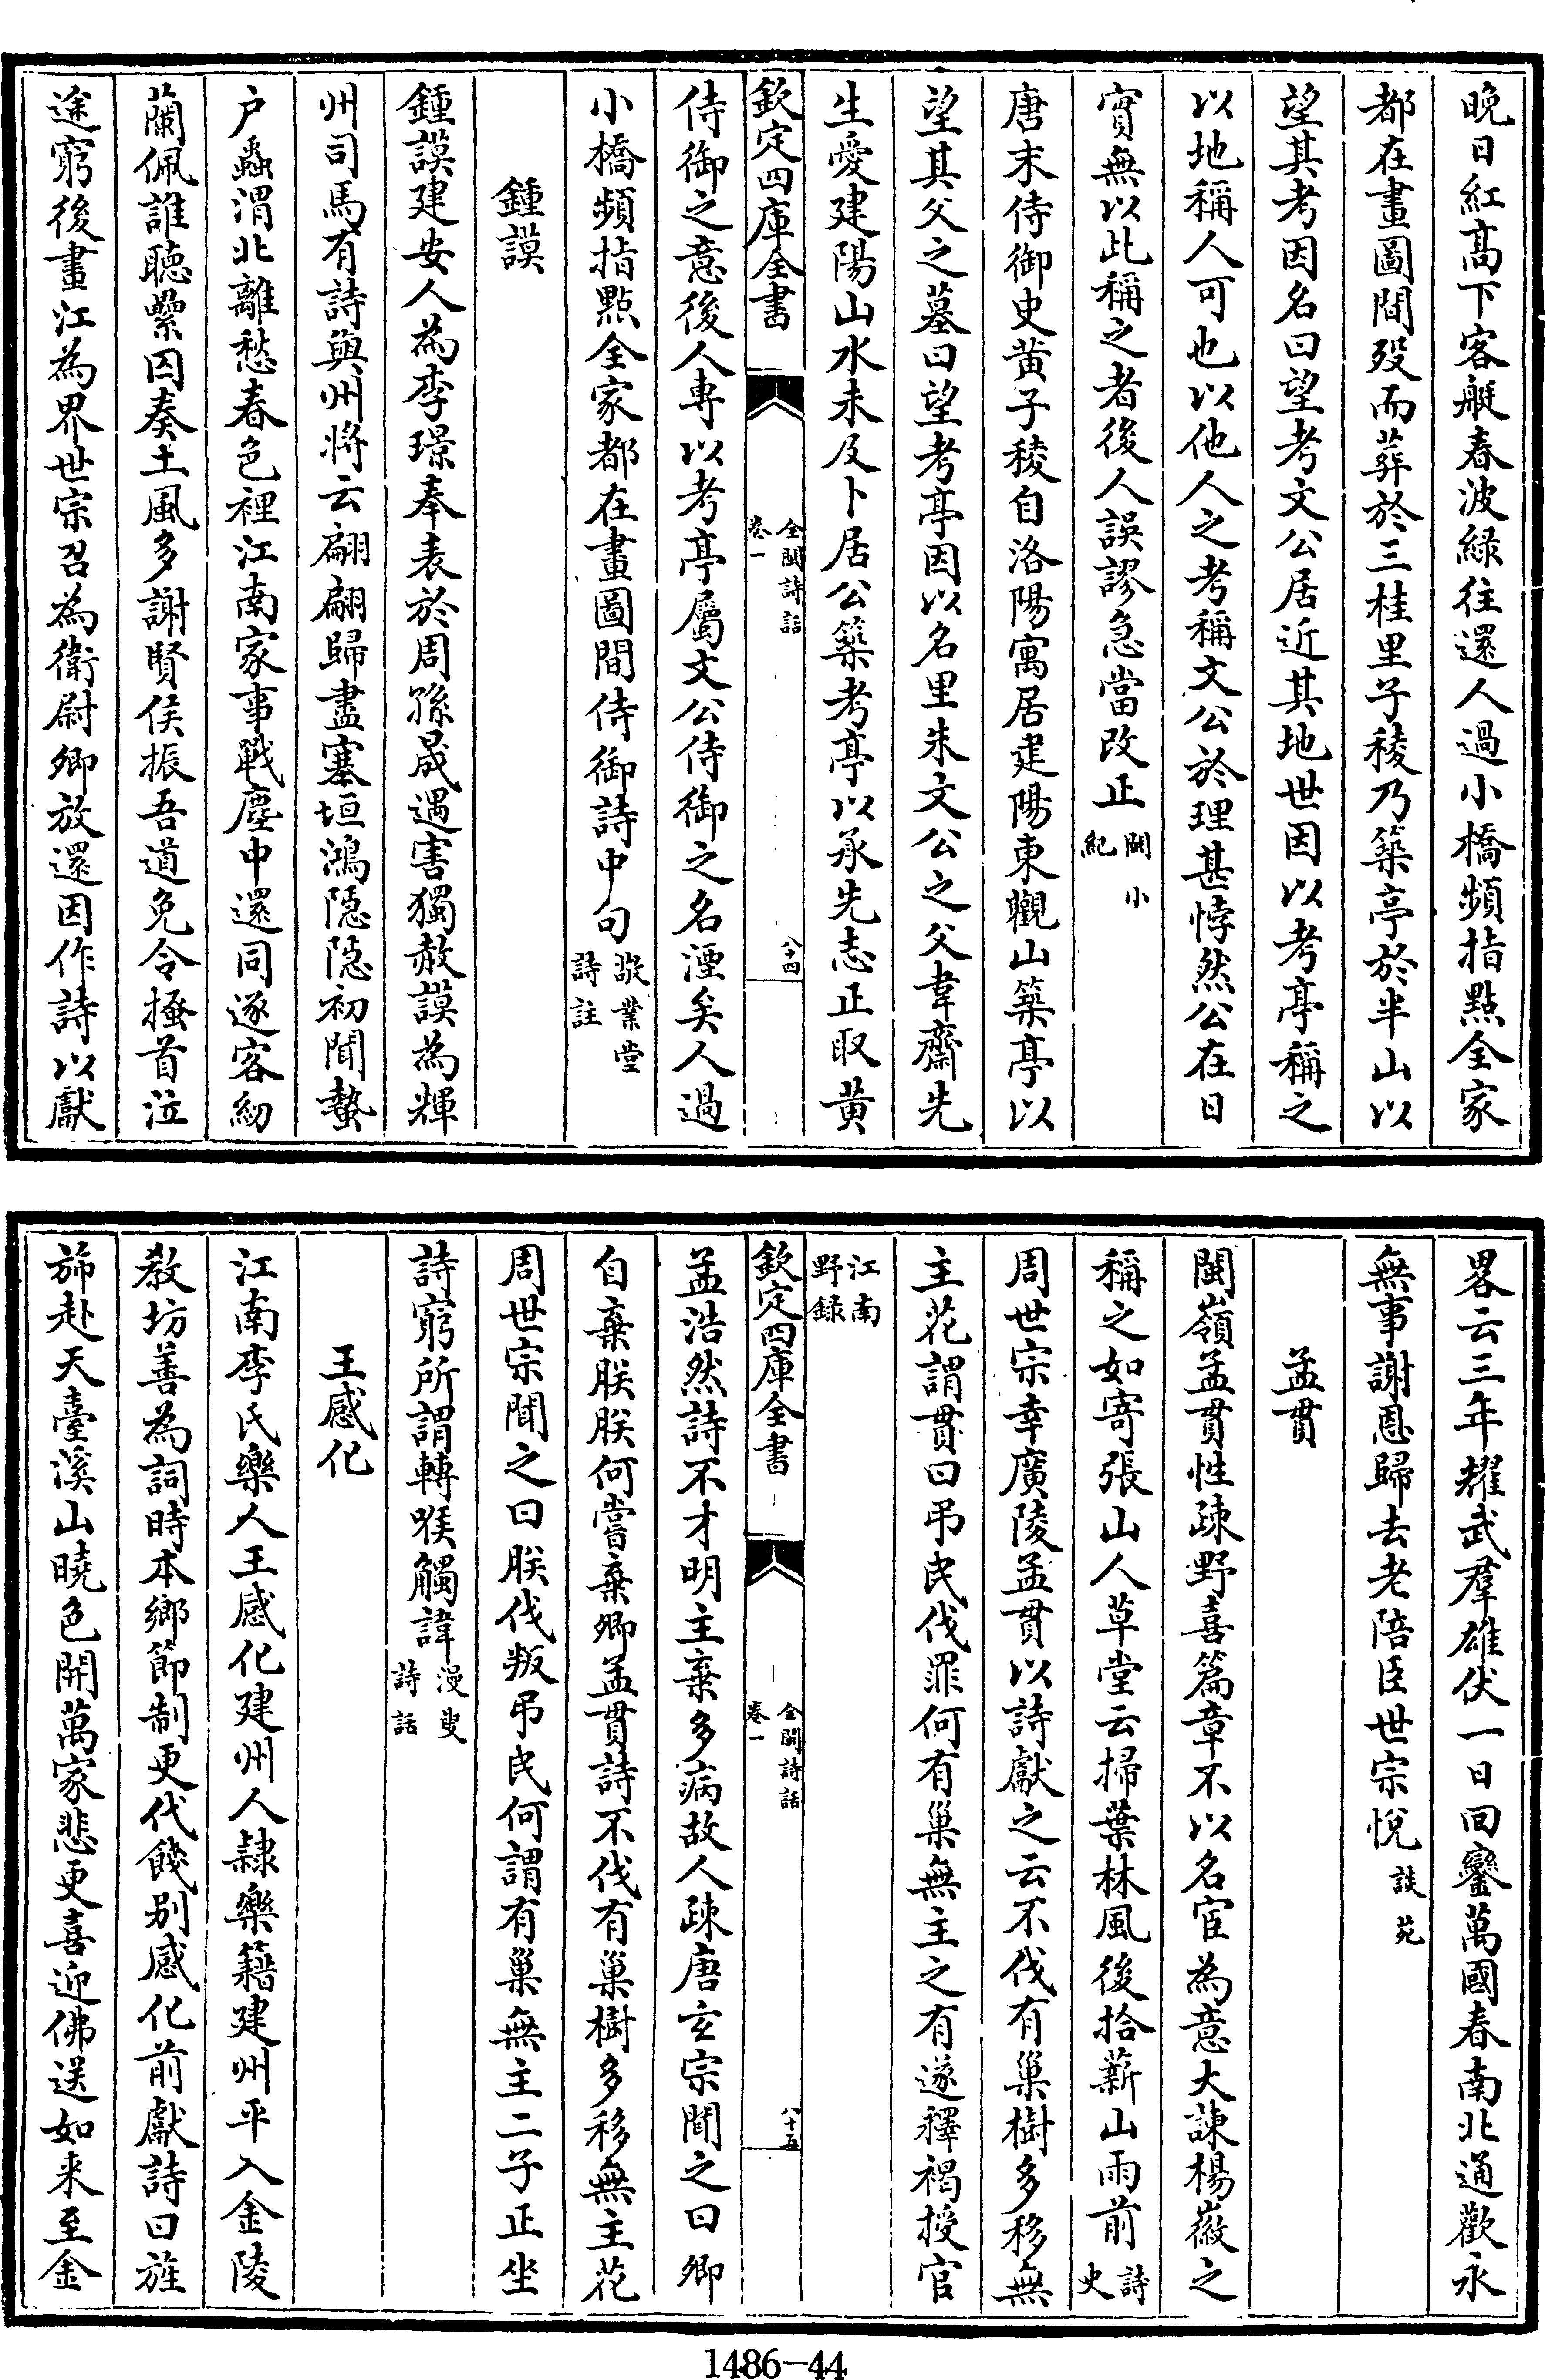 晩日紅髙下客艇春波綠往還人過小橋頻指點全家
都在畫圖間殁而葬於三桂里子稜乃築亭於半山以
望其考因名曰望考文公居近其地世因以考亭稱之
以地稱人可也以他人之考稱文公於理甚悖然公在日
實無以此稱之者後人誤謬急當改正閩小紀
唐末侍御史黄子稜自洛陽寓居建陽東觀山築亭以
望其父之墓曰望考亭因以名里朱文公之父韋齋先
生愛建陽山水未及卜居公築考亭以承先志正取黄
欽定四庫全書
全閩詩話
卷一
八十四
侍御之意後人專以考亭屬文公侍御之名湮矣人過
小橋頻指點全家都在畫圖間侍御詩中句敬業堂詩註
鍾謨
鍾謨建安人為李璟奉表於周孫晟遇害獨赦謨為輝
州司馬有詩與州將云翩翩歸盡塞垣鴻隠隠初聞蟄
户蟲渭北離愁春色裡江南家事戰塵中還同逐客紉
蘭佩誰聴纍囚奏土風多謝賢侯振吾道免令搔首泣
途窮後畫江為界世宗召為衛尉卿放還因作詩以獻
畧云三年耀武羣雄伏一日回鑾萬國春南北通歡永
無事謝恩歸去老陪臣世宗悅談苑
孟貫
閩嶺孟貫性疎野喜篇章不以名宦為意大諫楊徽之
稱之如寄張山人草堂云掃葉林風後拾薪山雨前詩史
周世宗幸廣陵孟貫以詩獻之云不伐有巢樹多移無
主花謂貫曰弔民伐罪何有巢無主之有遂釋褐授官
江南野録
欽定四庫全書
全閩詩話
卷一
八十五
孟浩然詩不才明主棄多病故人疎唐玄宗聞之曰卿
自棄朕朕何嘗棄卿孟貫詩不伐有巢樹多移無主花
周世宗聞之曰朕伐叛弔民何謂有巢無主二子正坐
詩窮所謂轉喉觸諱漫叟詩話
王感化
江南李氏樂人王感化建州人隷樂籍建州平入金陵
教坊善為詞時本鄉節制更代餞别感化前獻詩曰旌
斾赴天臺溪山曉色開萬家悲更喜迎佛送如来至金
1486-44